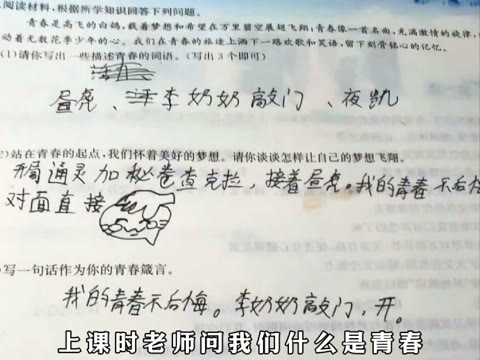 阅读材料,根据所学知识回答下列问题。
青春是高飞的白鸽,载着梦想和希望在万里碧空展翅飞翔;青春像一首名曲,充满激情的旋律,
动着无数花季少年的心。我们在青春的旅途上洒下一路欢歌和笑语,留下刻骨铭心的记忆。
(1)请你写出一些描述青春的词语。(写出3个即可)
昼虎、李奶奶敲门、夜凯
2)站在青春的起点,我们怀着美好的梦想。请你谈谈怎样让自己的梦想飞翔。
开局通灵加秘卷查克拉,接着昼虎。我的青春不后悔
对面直接
写一句话作为你的青春箴言。
我的青春不后悔。李奶奶敲门,开。
上课时老师问我们什么是青春